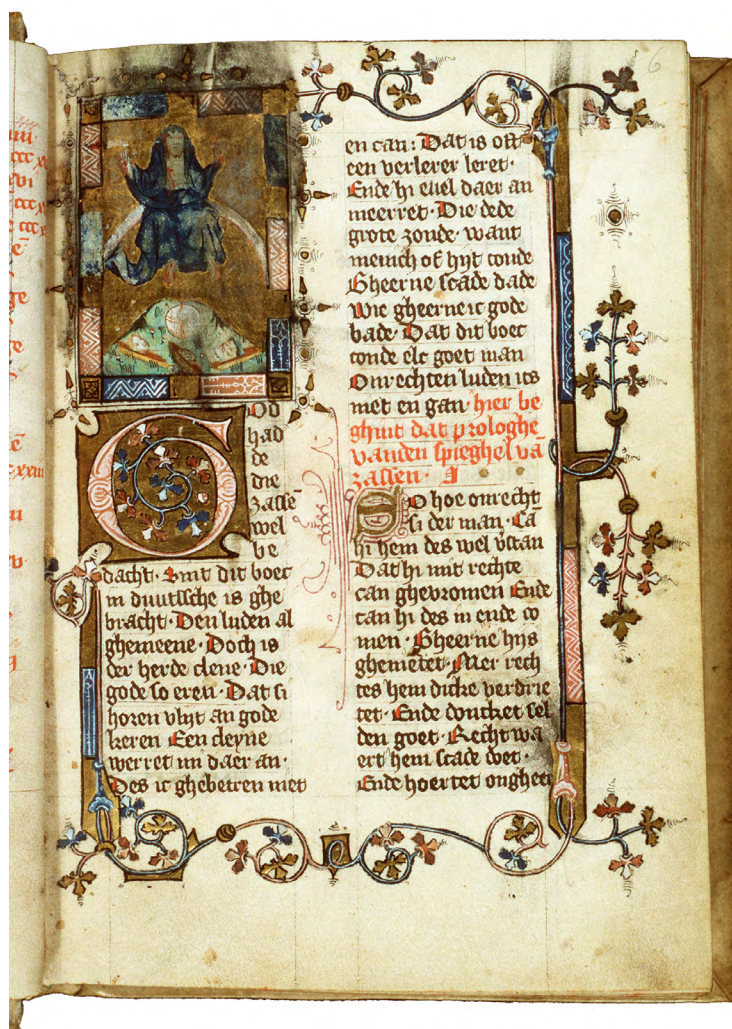 6
God
had
de
die
zassē
wel
be
dacht · Smit dit boec
in duutssche is ghe
bracht · Den luden al
ghemeene · Doch is
der herde clene · Die
gode so eren · Dat si
horen vlijt an gode
keren Een cleyne
werret mi daer an ·
Des ic ghebetren niet
en can : Dat is oft
een verlerer leret ·
Ende hi euel daer an
meerret · Die dede
grote zonde · want
mennich of hijt conde
Gheerne scade dade
Wie gheerne ic gode
bade · Dat dit boec
conde elc goet man
Onrechten luden ics
niet en gan · hier be
ghint dat prologhe
vanden spieghel vā
zassen · I
O hoe onrecht
si der man · Cā
hi hem des wel v̄stan
Dat hi mit rechte
can ghevromen Ende
can hi des in ende co
men · Gheerne hijs
ghenietet · Mer rech
tes hem dicke verdrie
tet · Ende doncket sel
den goet · Recht wa
ert hem scade doet ·
Ende hoertet ongheer